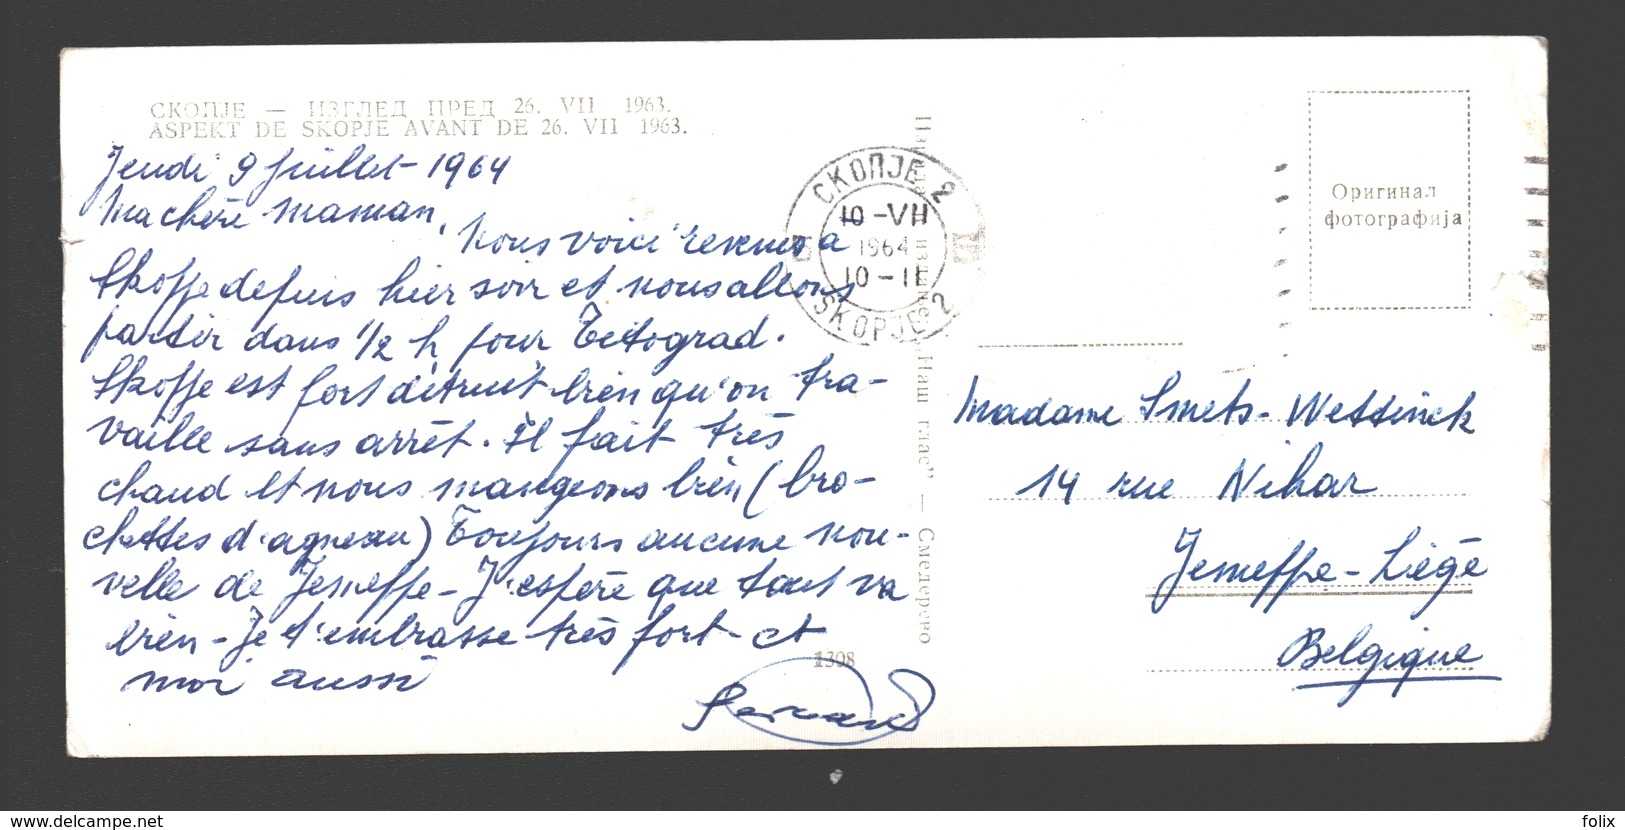 СКОПЈЕ — ИЗГЛЕД ПРЕД 26. VII 1963.
ASPEKT DE SKOPJE AVANT DE 26. VII 1963.
Jeudi 9 Juillet 1964
Ma chère maman,
Nous voici revenus à
Skopje depuis hier soir et nous allons
partir dans 1/2 h pour Titograd.
Skopje est fort détruit bien qu'on tra-
vaille sans arrêt. Il fait très
chaud et nous mangeons bien (bro-
chettes d'agneau) Toujours aucune nou-
velle de Jemeppe - J'espère que tout va
bien - Je t'embrasse très fort - et
moi aussi
1308
СКОПЈЕ 2
10-VII
1964
10-11
SKOPJE 2
„Наш глас” — Смедерево
Оригинал
фотографија
Madame Smets-Wettinck
14 rue Nihar
Jemeppe-Liège
Belgique
www.delcampe.net
folix